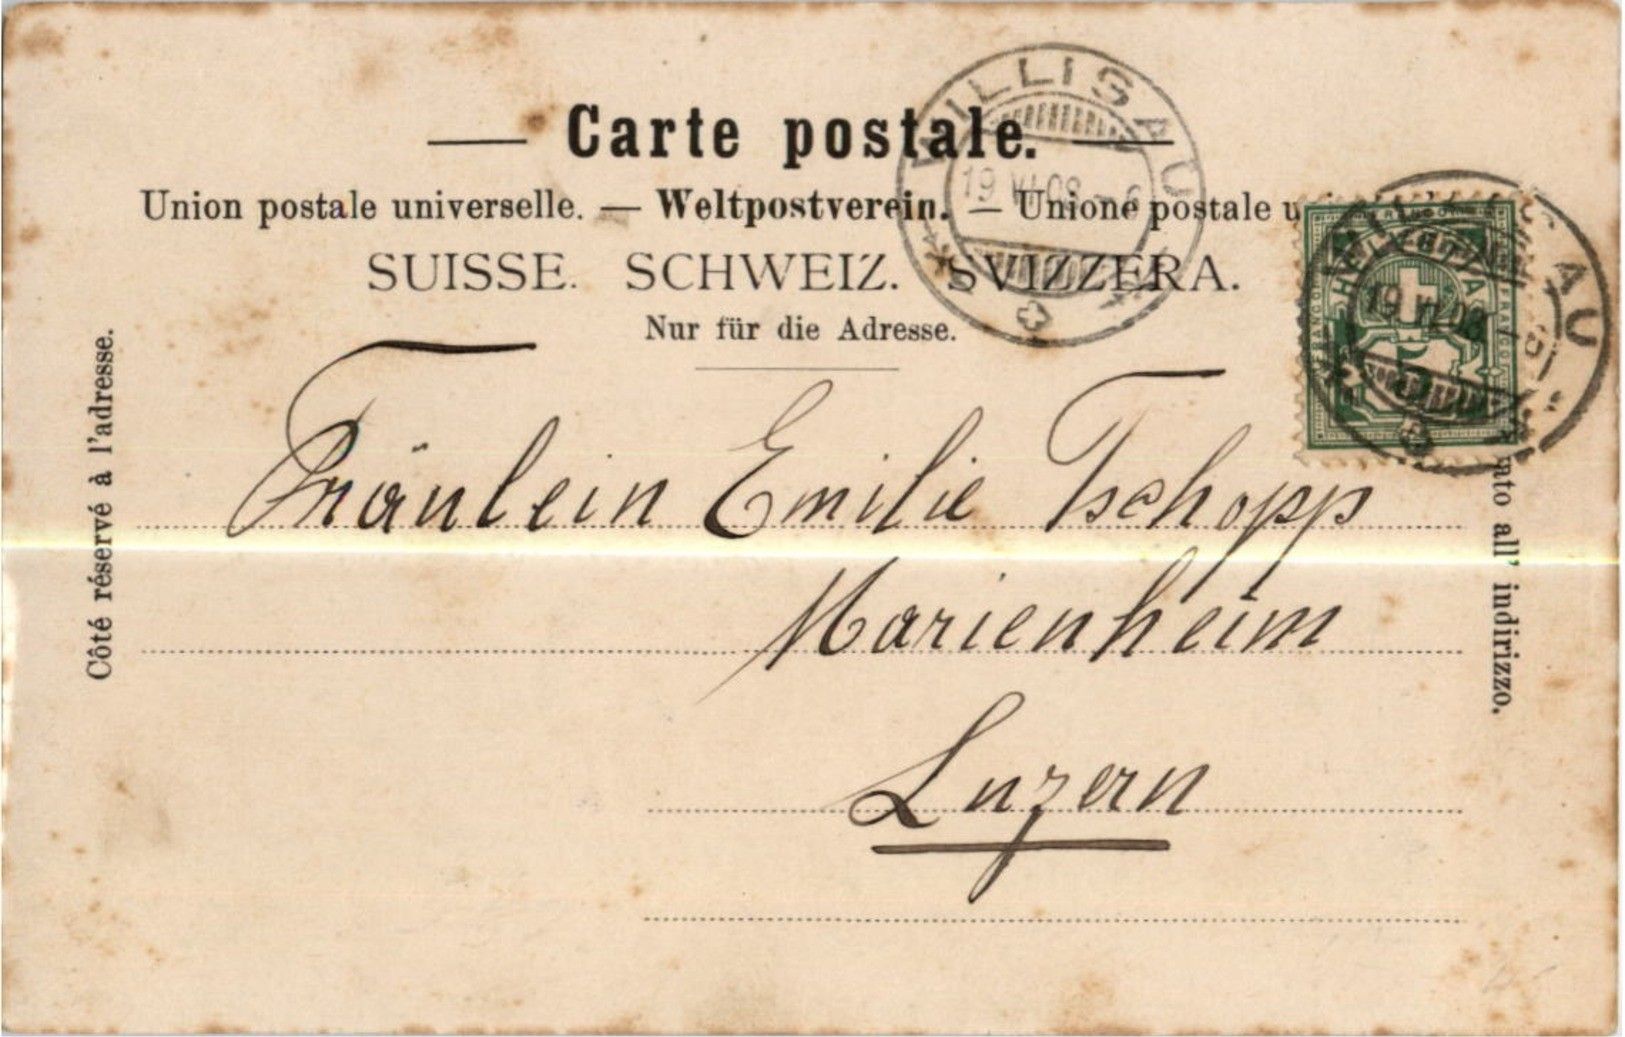 WILLISAU
19 VI 08 – 6
— Carte postale. —
Union postale universelle. — Weltpostverein. — Unione postale
SUISSE. SCHWEIZ. SVIZZERA.
Nur für die Adresse.
Côté réservé à l'adresse.
all' indirizzo.
FRANCO
HELVETIA
5
AU
19 VI 08
Fräulein Emilie Tschopp
Marienheim
Luzern